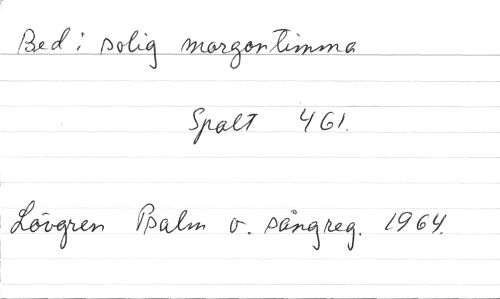 Bed i solig morgontimma
Spalt 461.
Lövgren Psalm o. sångreg. 1964.